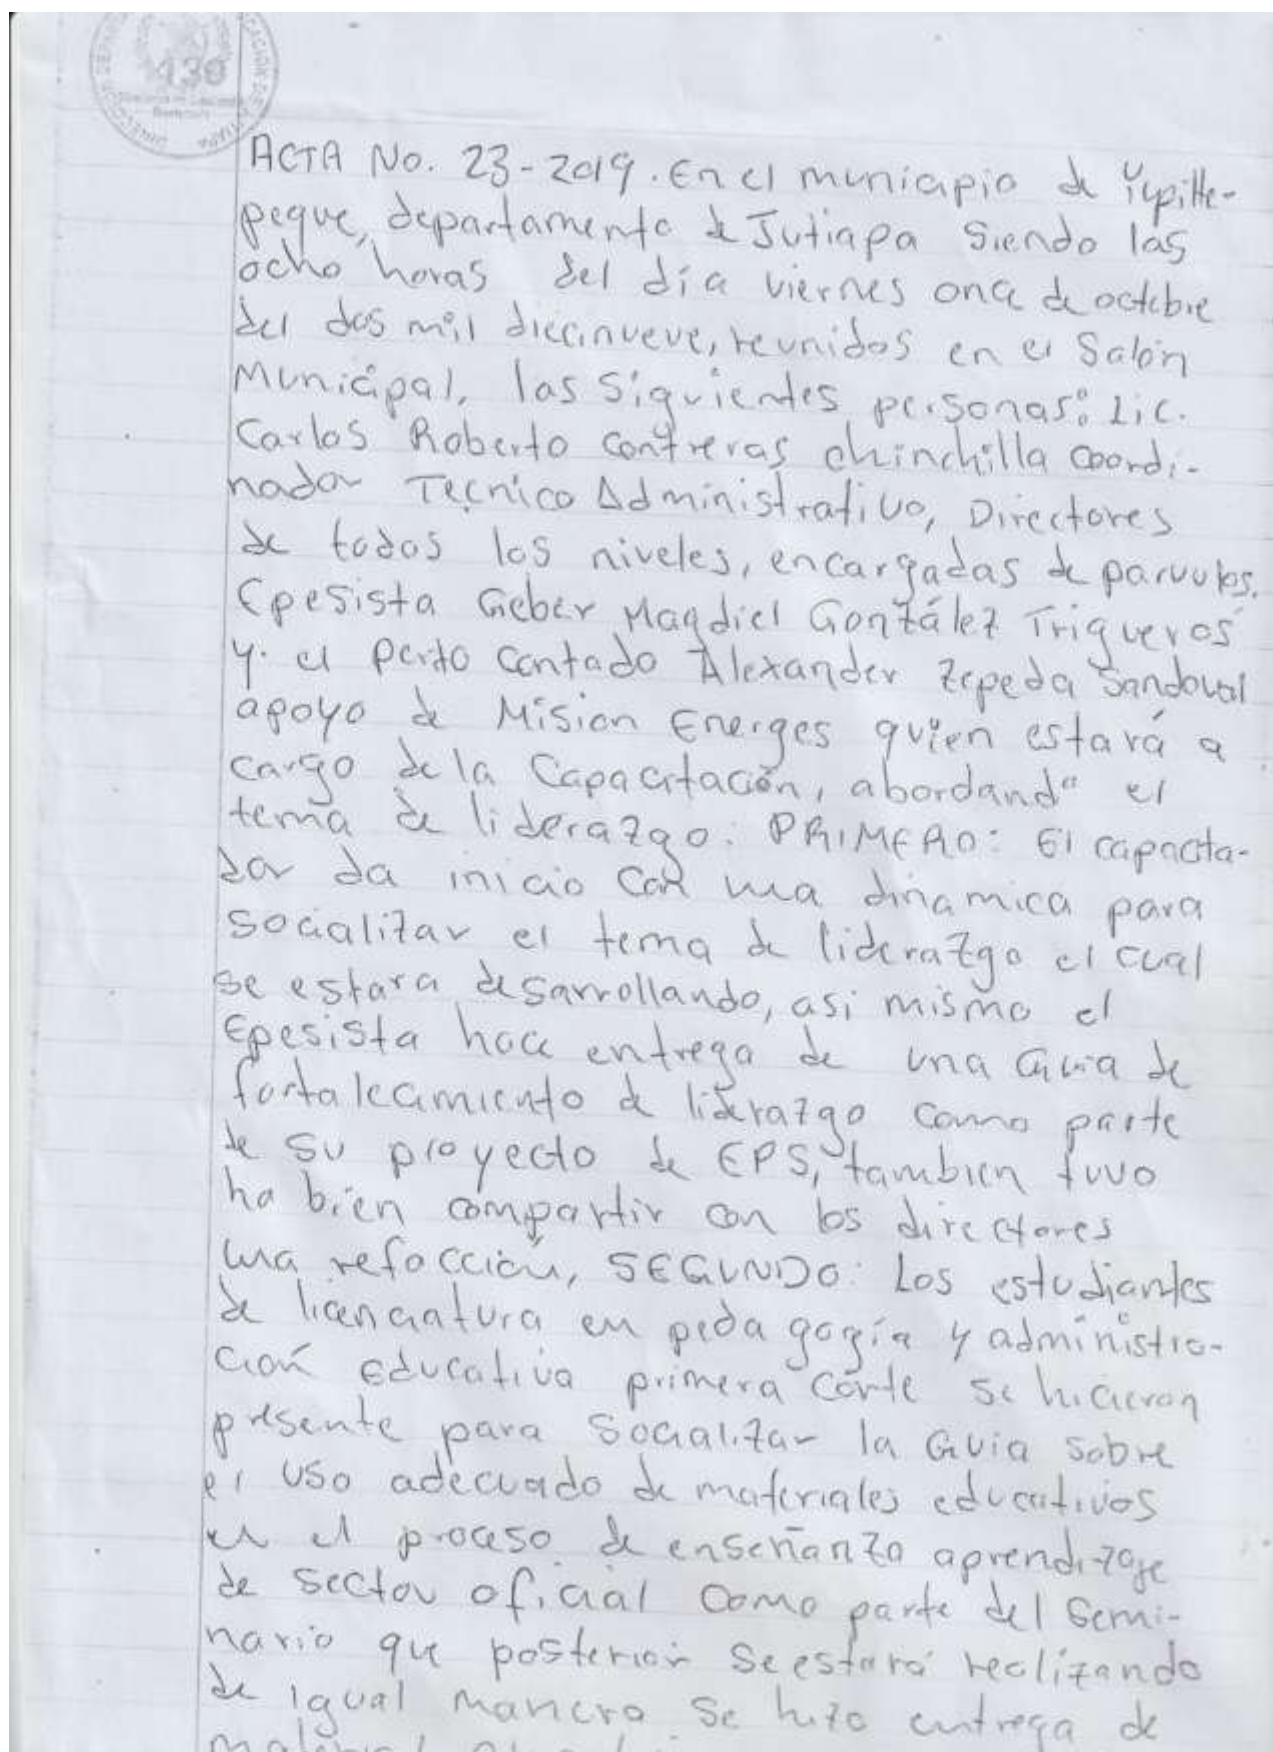 439
ACTA No. 23-2019. En el municipio de Yupilte-
peque, departamento de Jutiapa siendo las
ocho horas del día viernes once de octubre
del dos mil diecinueve, reunidos en el Salón
Municipal, las siguientes personas: Lic.
Carlos Roberto Contreras chinchilla coordi-
nador Tecnico Administrativo, Directores
de todos los niveles, encargadas de parvulos.
Epesista Geber Magdiel González Trigueros
y. el perito contado Alexander Zepeda Sandoval
apoyo de Mision Energes quien estará a
cargo de la Capacitación, abordando el
tema de liderazgo. PRIMERO: El capacita-
dor da inicio con una dinamica para
socializar el tema de liderazgo el cual
se estara desarrollando, asi mismo el
Epesista hace entrega de una Guia de
fortalecimiento de liderazgo como parte
de su proyecto de EPS, tambien tuvo
ha bien compartir con los directores
una refacción, SEGUNDO: Los estudiantes
de licenciatura en pedagogía y administra-
ción Educativa primera corte se hicieron
presente para socializar la Guia sobre
el uso adecuado de materiales educativos
en el proceso de enseñanza aprendizaje
de sector oficial como parte del semi-
nario que posterior se estará realizando
de igual manera se hizo entrega de
material